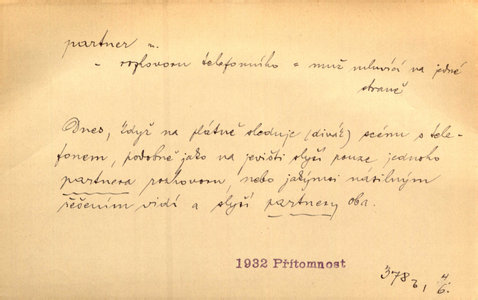 partner m.
- rozhovoru telefonního = muž mluvící na jedné
straně
Dnes, když na plátně sleduje (divák) scénu s tele-
fonem, podobně jako na jevišti slyší pouze jednoho
partnera rozhovoru, nebo jakýmsi násilným
řešením vidí a slyší partnery oba.
1932 Přítomnost
378 4/6.